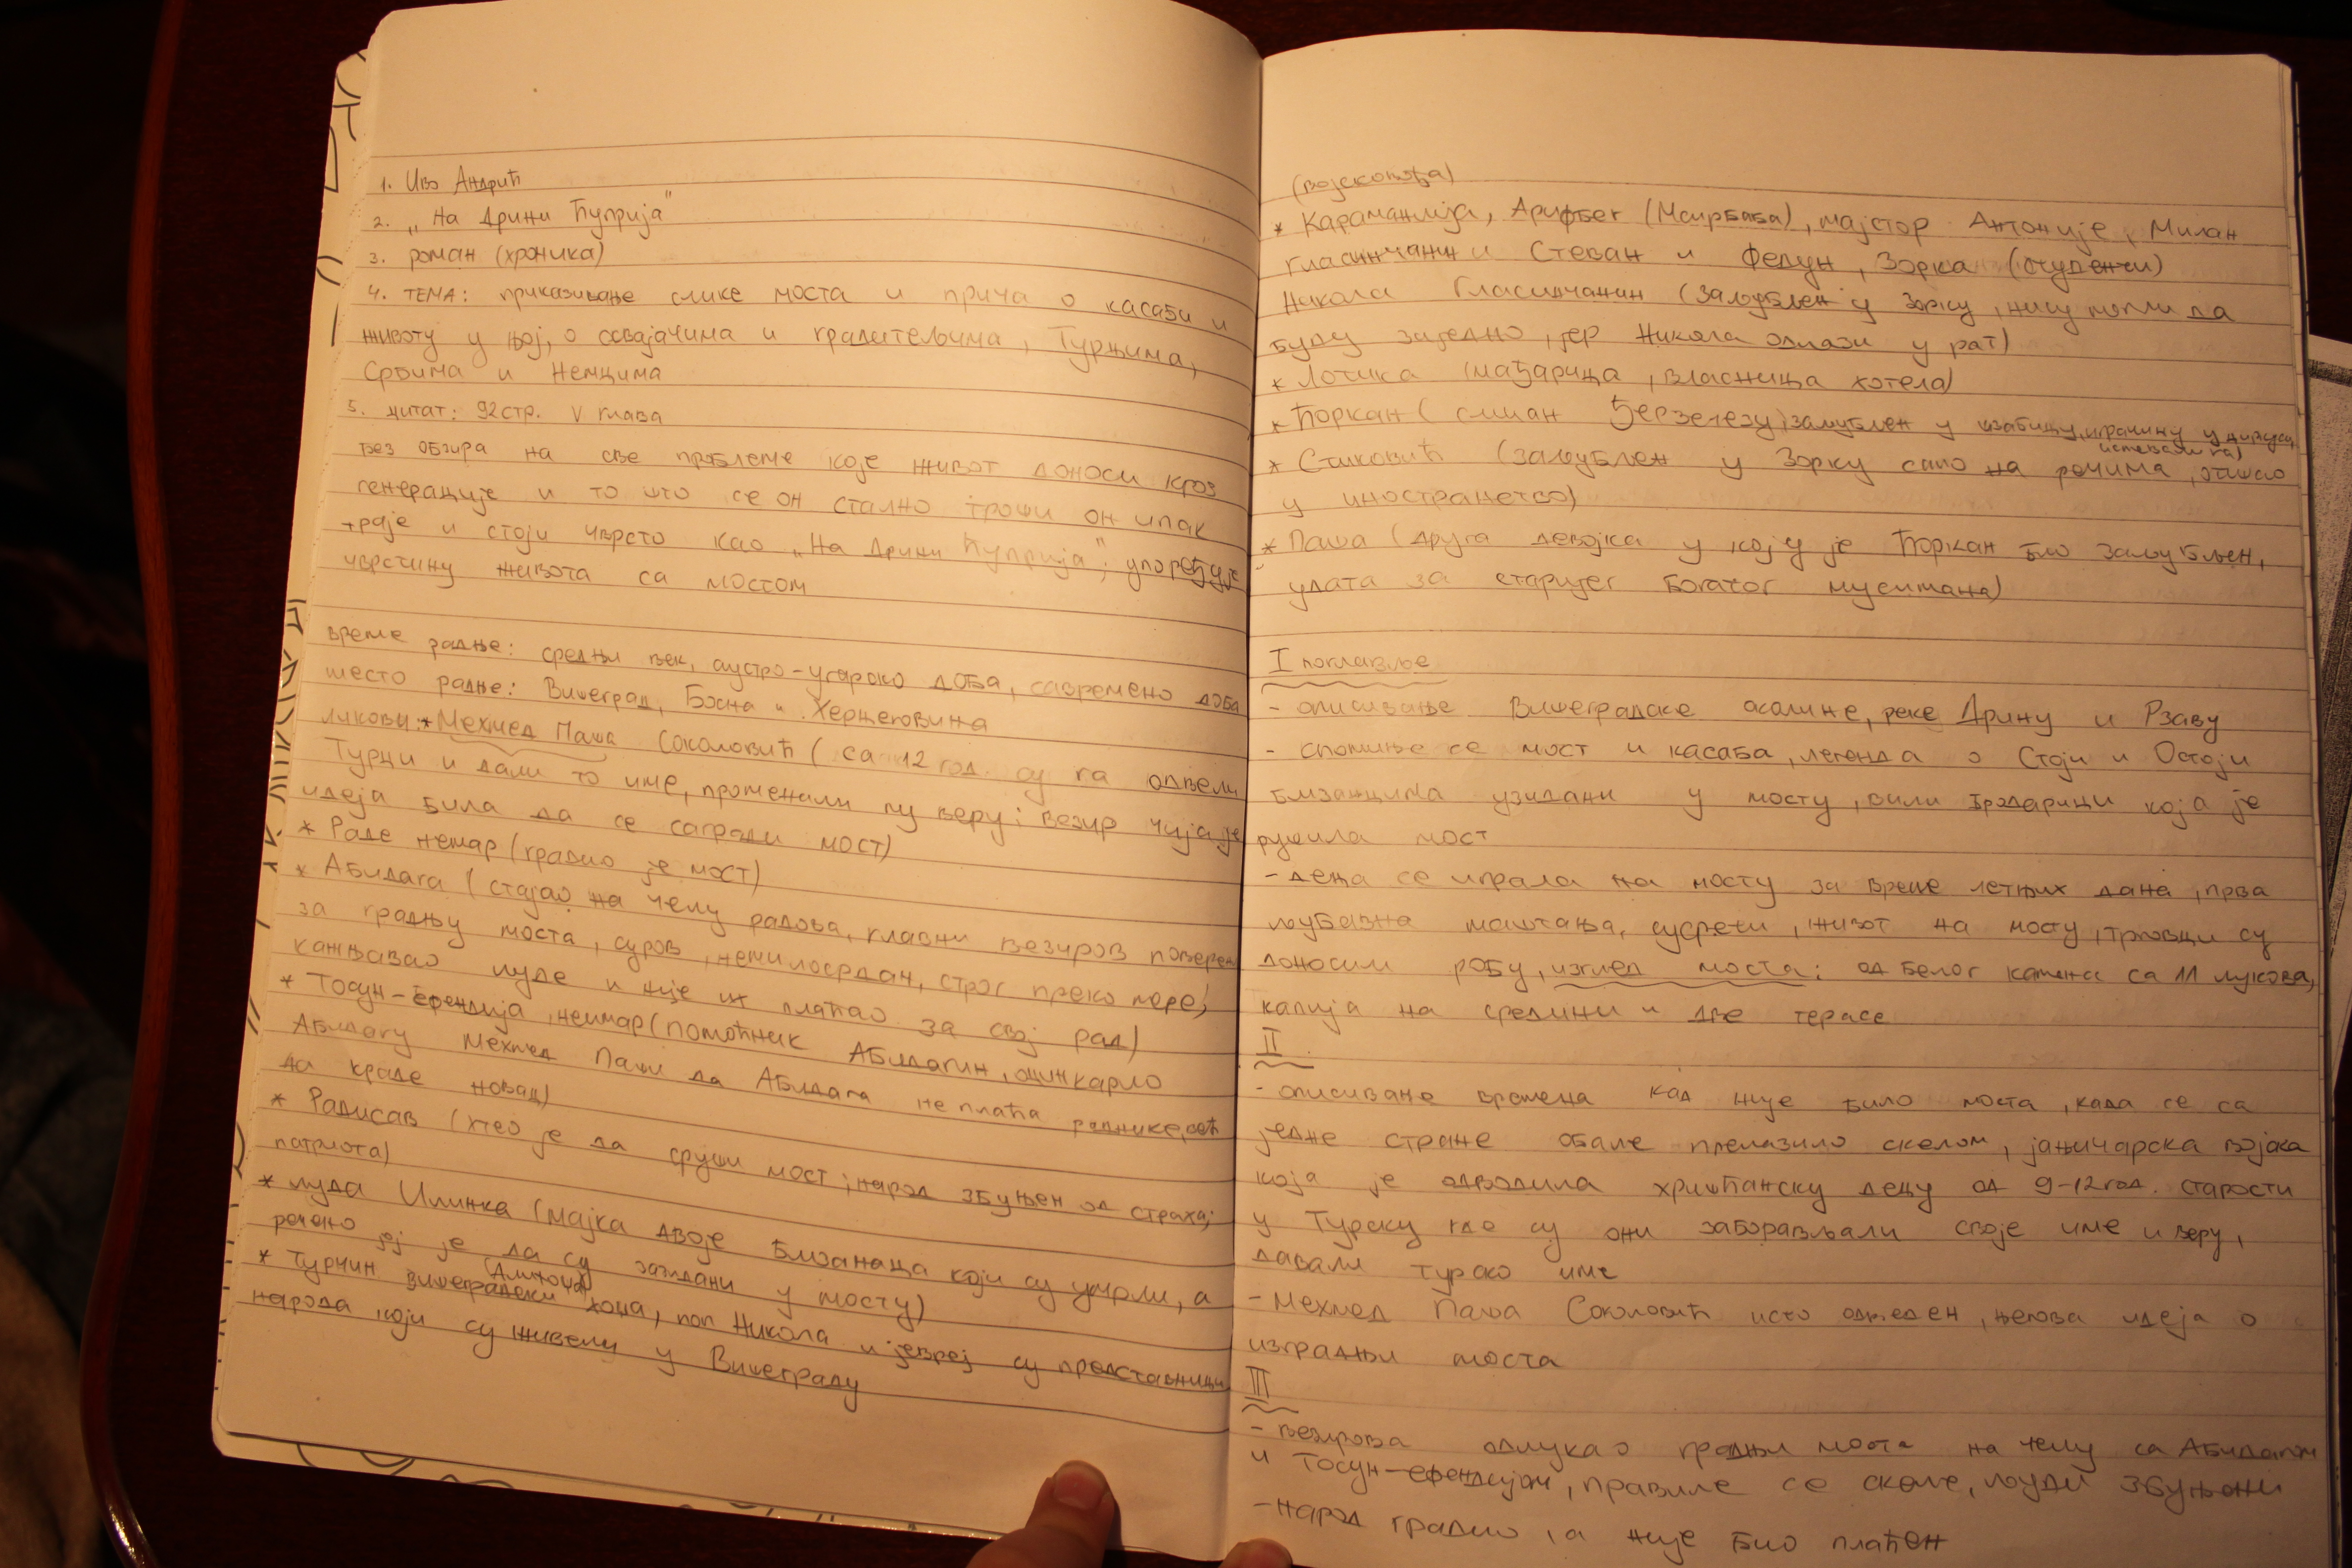 1. Иво Андрић
2. „На Дрини Ћуприја"
3. роман (хроника)
4. ТЕМА: приказивање слике моста и прича о касаби и
животу у њој, о освајачима и градитељима, Турцима,
Србима и Немцима
5. цитат: 92 стр. V глава
без обзира на све проблеме које живот доноси кроз
генерације и то што се он стално троши он ипак
траје и стоји чврсто као „На Дрини Ћуприја"; упоређује
чврстину живота са мостом
време радње: средњи век, аустро-угарско доба, савремено доба
место радње: Вишеград, Босна и Херцеговина
ликови: * Мехмед Паша Соколовић (са 12 год. су га одвели
Турци и дали то име, променили му веру; везир чија је
идеја била да се сагради мост)
* Раде неимар (градио је мост)
* Абидага (стајао на челу радова, главни везиров поверен
за градњу моста, суров, немилосрдан, строг преко мере,
кажњавао људе и није их плаћао за свој рад)
* Тосун-ефендија, неимар (помоћник Абидагин, оцинкарио
Абидагу Мехмед Паши да Абидага не плаћа раднике, већ
да краде новац)
* Радисав (хтео је да сруши мост; народ збуњен од страха;
патриота)
* луда Илинка (мајка двоје близанаца који су умрли, а
речено јој је да су зазидани у мосту)
* Турчин вишеградски (Алихоџа) хоџа, поп Никола и јевреј су представници
народа који су живели у Вишеграду
(војсковођа)
* Караманлија, Арифбег, мајстор Антоније, Милан
Гласинчанин и Стеван и Федун, Зорка (студенти)
Никола Гласинчанин (заљубљен у Зорку, нису могли да
буду заједно, јер Никола одлази у рат)
* Лотика (мађарица, власница хотела)
* Ћоркан (сличан Ђерзелезу; заљубљен у швабицу, играчицу у циркусу,
истерали га)
* Стиковић (заљубљен у Зорку само на речима, отишао
у иностранство)
* Паша (друга девојка у коју је Ћоркан био заљубљен,
удата за старијег богатог муслимана)
I поглавље
- описивање Вишеградске околине, реке Дрину и Рзаву
- спомиње се мост и касаба, легенда о Стоји и Остоји
близанцима узидани у мосту, вили бродарици која је
рушила мост
- деца се играла на мосту за време летњих дана, прва
љубавна маштања, сусрети, живот на мосту, трговци су
доносили робу, изглед моста: од белог камена са 11 лукова,
капија на средини и две терасе
II
- описивање времена кад није било моста, када се са
једне стране обале прелазило скелом, јањичарска војска
која је одводила хришћанску децу од 9-12 год. старости
у Турску где су они заборављали своје име и веру,
давали турско име
- Мехмед Паша Соколовић исто одведен, његова идеја о
изградњи моста
III
- везирова одлука о градњи моста на челу са Абидагом
и Тосун-ефендијом, правиле се скеле, људи збуњени
- народ градио, а није био плаћен